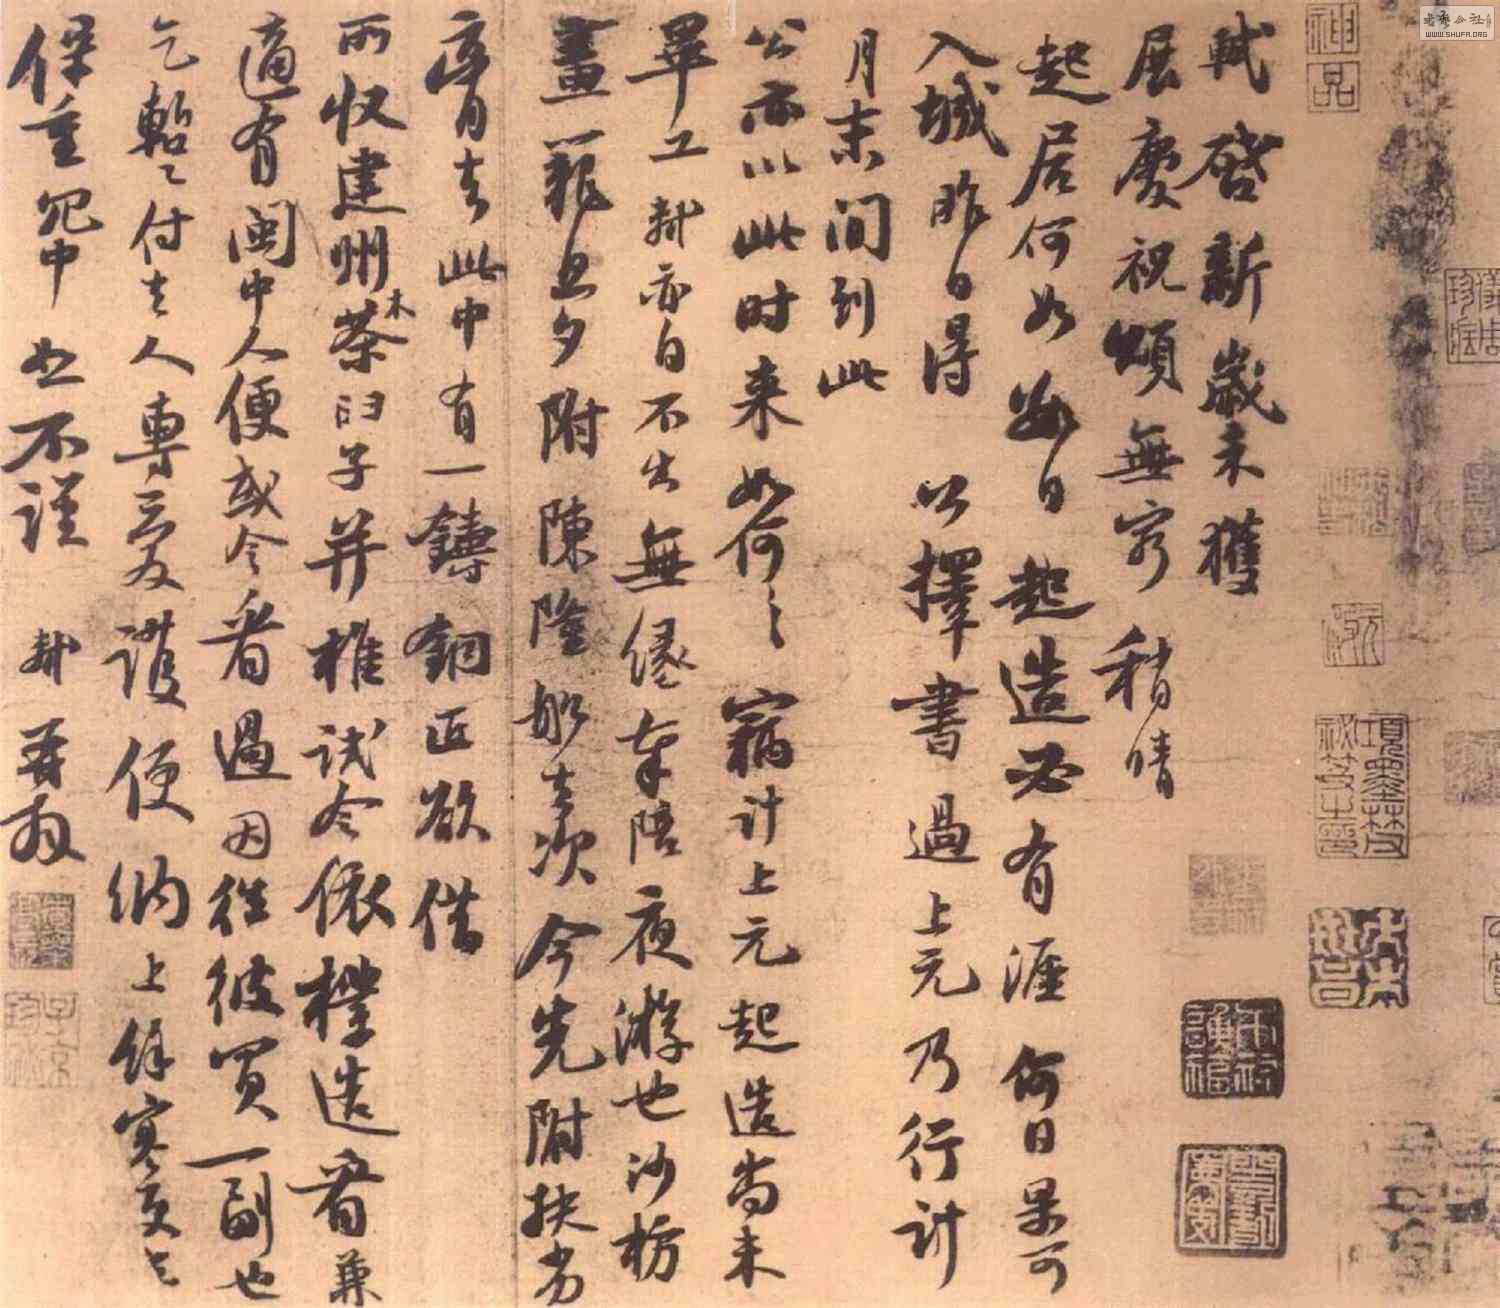 軾啓新歲未獲
展慶祝頌無窮稍晴
起居何如數日起造必有涯何日果可
入城昨日得公擇書過上元乃行計
月末間到此
公亦以此时来如何〻竊计上元起造尚未
畢工軾亦自不出無緣奉陪夜游也沙枋
畫籠旦夕附陳隆船去次今先附扶劣
膏去此中有一鑄銅匠欲借
所收建州木茶臼子并椎試令依樣造看兼
適有閩中人便或令看過因往彼買一副也
乞暫〻付去人專爱護便納上餘寒更乞
保重冗中恕不謹軾再拜
神品
項墨林父
祕笈之印
WWW.SHUFA.ORG